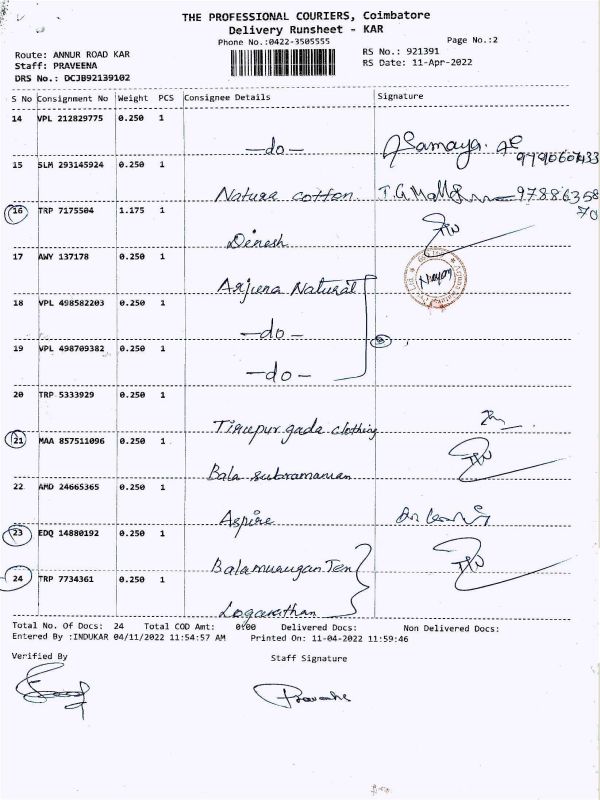 THE PROFESSIONAL COURIERS, Coimbatore
Delivery Runsheet - KAR
Phone No.:0422-3505555
Page No.:2
Route: ANNUR ROAD KAR
RS No.: 921391
Staff: PRAVEENA
RS Date: 11-Apr-2022
DRS No.: DCJB92139102
S No Consignment No Weight PCS Consignee Details Signature
14 VPL 212829775 0.250 1
-do- Samaya.
15 SLM 293145924 0.250 1
Natura cotton T.G 97886358
70
16 TRP 7175504 1.175 1
Dinesh
17 AWY 137178 0.250 1
Arjuna Natural
18 VPL 498582203 0.250 1
-do-
19 VPL 498709382 0.250 1
-do-
20 TRP 5333929 0.250 1
Tirupur gada clothing
21 MAA 857511096 0.250 1
Bala subramanian
22 AMD 24665365 0.250 1
Aspire
23 EDQ 14880192 0.250 1
Balamurugan Ten
24 TRP 7734361 0.250 1
Loganathan
Total No. Of Docs: 24 Total COD Amt: 0.00 Delivered Docs: Non Delivered Docs:
Entered By :INDUKAR 04/11/2022 11:54:57 AM Printed On: 11-04-2022 11:59:46
Verified By Staff Signature